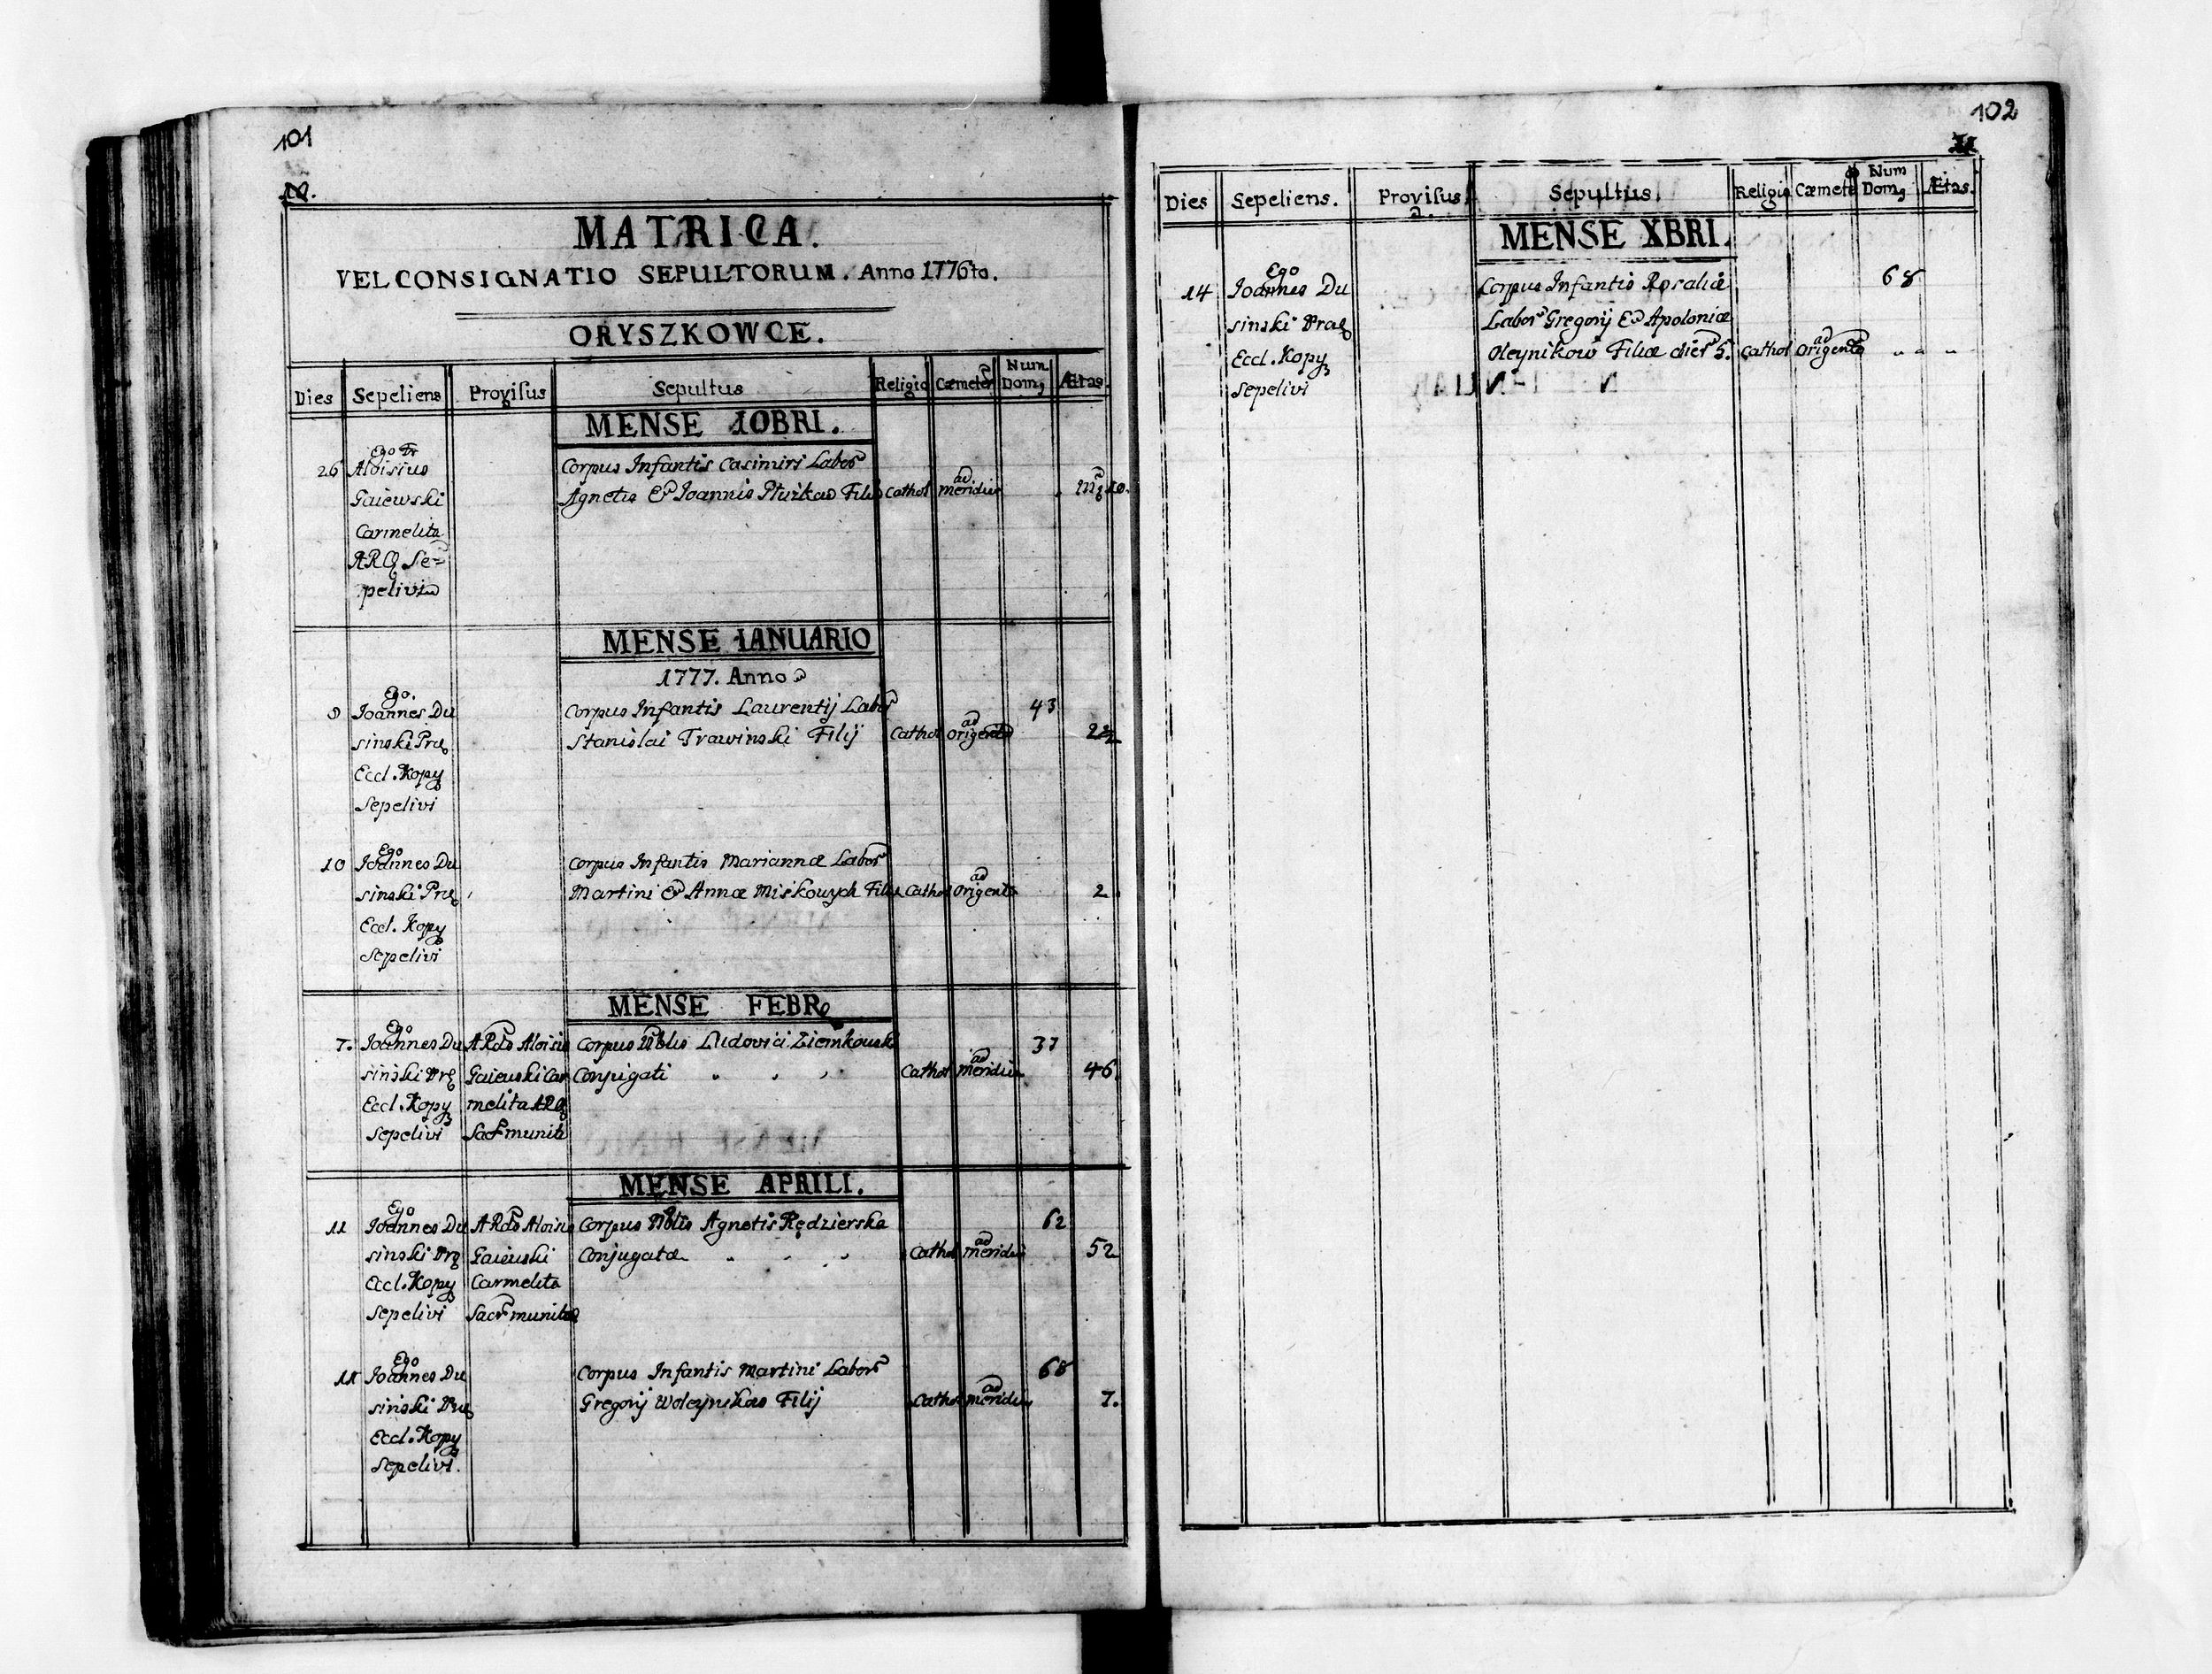 101
MATRICA.
VEL CONSIGNATIO SEPULTORUM. Anno 1776to.
ORYSZKOWCE.
Dies Sepeliens Provisus Sepultus Religio Cæmeter Num Dom, Ætas.
MENSE 10BRI.
Ego Fr
26 Aloisius Corpus Infantis Casimiri Labor
Gaiewski Agnetis & Joannis Płuzkow Filij Cathol ad meridie 10.
Carmelita
ARO Se=
pelivi
MENSE IANUARIO
1777. Anno
Ego.
9 Joannes Du Corpus Infantis Laurentij Labor 43
sinski Præ Stanislai Trawinski Filij Cathol ad origente 2
Eccl. Kopy
Sepelivi
Ego
10 Joannes Du Corpus Infantis Mariannæ Labor
sinski Præ Martini & Annæ Miskowych Filiæ Cathol ad origente 2.
Eccl. Kopy
Sepelivi
MENSE FEBR
Ego
7. Joannes Du ARds Aloisius Corpus Nblis Ludovici Ziemkouski 37
sinski Præ Gaiewski Car Conjugati Cathol ad meridie 46.
Eccl. Kopy melita ARO
Sepelivi Sacr muniti
MENSE APRILI.
Ego
11 Joannes Du ARds Aloisius Corpus Nblis Agnetis Rędzierska 62
sinski Præ Gaiewski Conjugatæ Cathol ad meridie 52
Eccl. Kopy Carmelita
Sepelivi Sacr munita
Ego
11 Joannes Du Corpus Infantis Martini Labor 68
sinski Præ Gregorij Woleynikow Filij Cathol ad meridie 7.
Eccl. Kopy
Sepelivi.
102
Dies Sepeliens. Provisus Sepultus. Religio Cæmete Num Dom, Ætas.
MENSE XBRI.
Ego
14 Joannes Du Corpus Infantis Rosaliæ 68
sinski Præ Labor Gregorij & Apoloniæ
Eccl. Kopy Oleynikow Filiæ dier 5. Cathol ad origente
Sepelivi